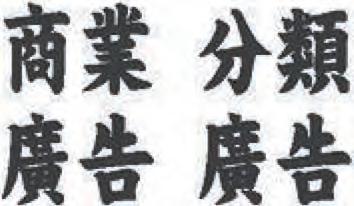 商業 分類
廣告 廣告